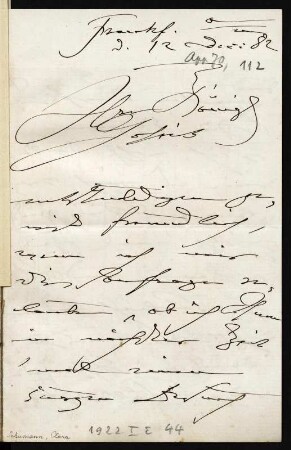 Frankf. a/m
d. 12 Dec: 82
App 70, 112
Herr König
entschuldigen ge,
wiß freundlich,
wenn ich mir
die Anfrage er,
laube, ob ich Ihnen
in nächster Zeit
mal einen
kurzen Besuch
Schumann, Clara
1922 I E 44